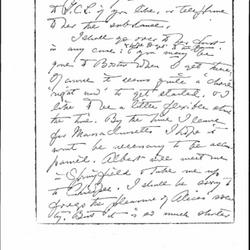 to S.C.L. if you like, or telephone
to her the substance.
I shall go over to
in any case; & you may be
gone to Boston when I get there.
Of course it seems quite a "chore
right now" to get started. & I
like to be a little flexible about
the time. By the time I leave
for Massachusetts I hope it
wont be necessary to be accom
panied. Albert will meet me
in Springfield & take me up
to Chicopee. I shall be sorry to
forego the pleasure of Alice's socie
ty. But it is so much shorter